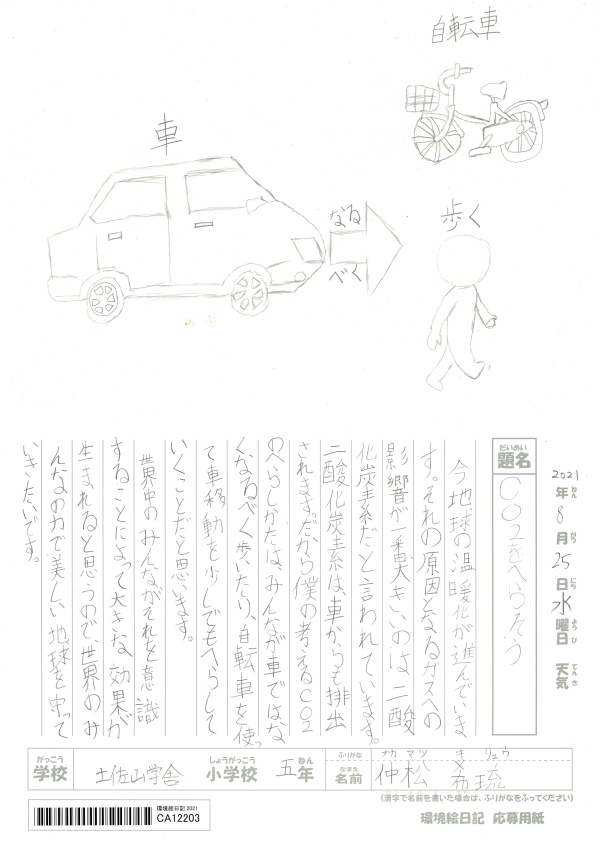 自転車
車
なる
べく
歩く
2021年8月25日水曜日 天気
ねん がつ にち ようび てんき
だいめい
題名
CO2をへらそう
今地球の温暖化が進んでいま
す。それの原因となるガスへの
影響が一番大きいのは、二酸
化炭素だと言われています。
二酸化炭素は、車からも排出
されます。だから僕の考えるCO2
のへらしかたは、みんなが車ではな
くなるべく歩いたり、自転車を使っ
て車移動を少しでもへらして
いくことだと思います。
世界中のみんながそれを意識
することによって大きな効果が
生まれると思うので、世界のみ
んなの力で美しい地球を守って
いきたいです。
がっこう しょうがっこう ねん
学校 土佐山学舎 小学校 五年
ふりがな ナカ マツ キ リュウ
なまえ
名前 仲松 希琉
(漢字で名前を書いた場合は、ふりがなをふってください)
環境絵日記2021
CA12203
環境絵日記 応募用紙